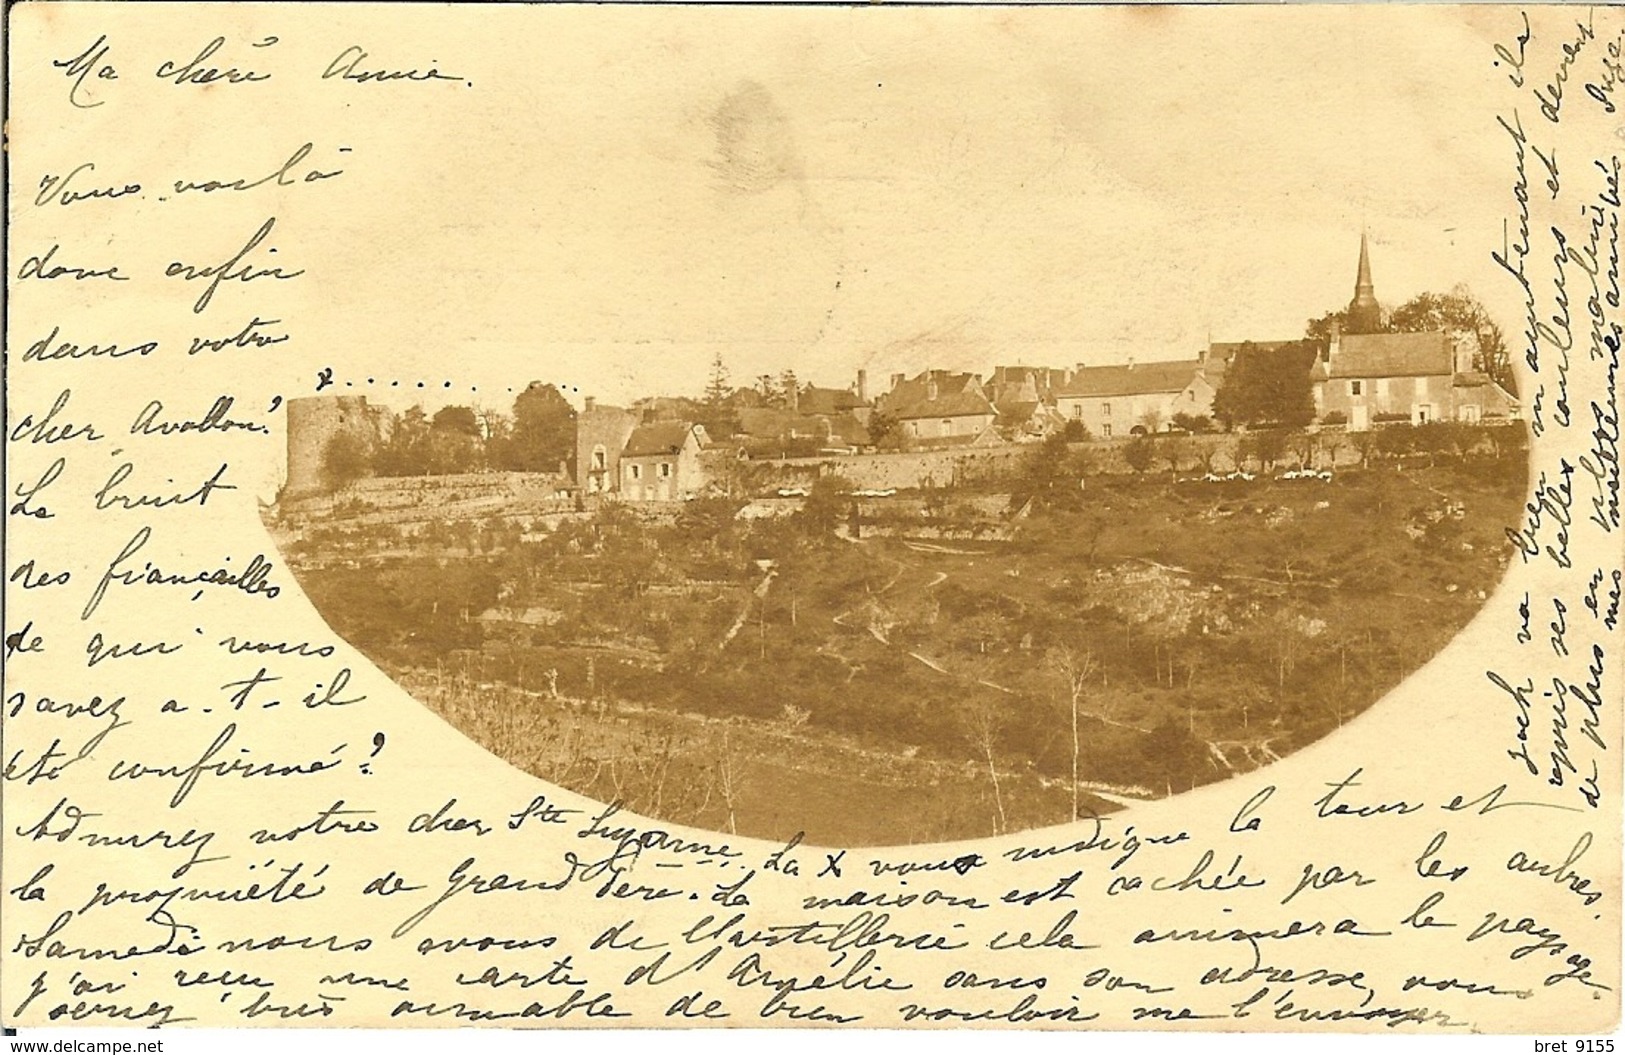 Ma chère Amie.
Vous voilà
donc enfin
dans votre
cher Avallon?
Le bruit
des fiançailles
de qui vous
savez a-t-il
été confirmé?
Admirez votre cher Ste Suzanne. La x vous indique la tour et
la propriété de Grand Père. La maison est cachée par les arbres.
Samedi nous avons de l'Artillerie cela animera le paysage.
j'ai reçu une carte d'Amélie sans son adresse, vous
seriez bien aimable de bien vouloir me l'envoyer.
va bien maintenant il a
repris ses belles couleurs et devient
de plus en plus malin
mes meilleures amitiés Suze.
x
bret 9155